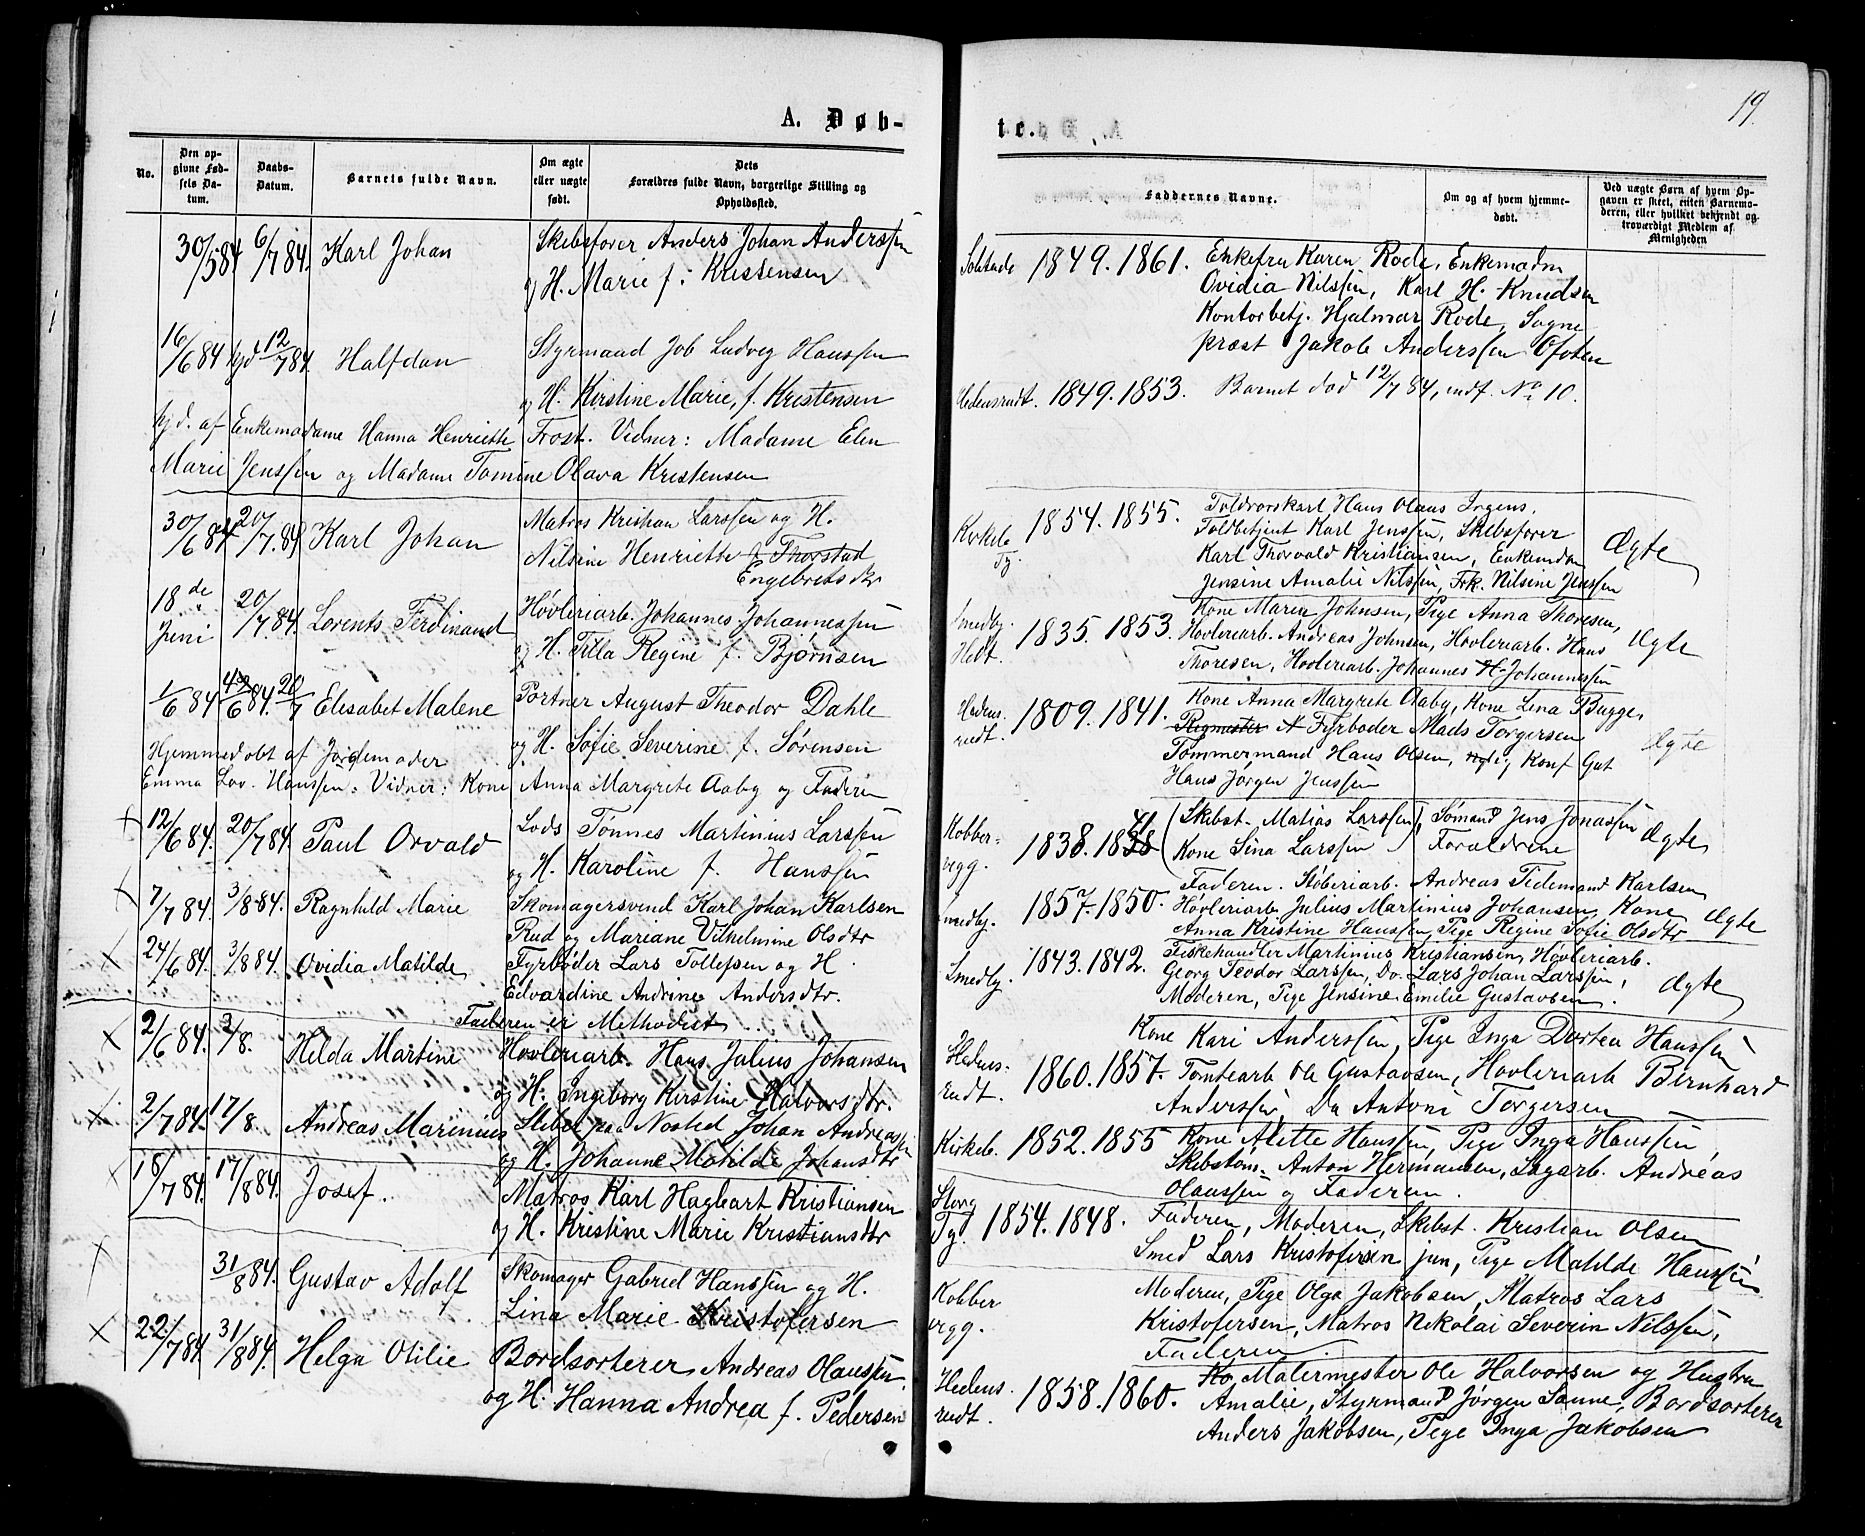 A. Døb-
No.
Den op-
givne Fød-
sels Da-
tum.
Daabs-
Datum.
Barnets fulde Navn.
Om ægte
eller uægte
født.
Dets
Forældres fulde Navn, borgerlige Stilling og
Opholdssted.
30/5 84 6/7 84. Karl Johan
Skibsfører Anders Johan Anderssen
og H. Marie f. Kristensen
16/6 84 hjd 12/7 84 Halfdan
Styrmand Job Ludvig Hanssen
og H. Kirstine Marie, f. Kristensen
hjd. af Enkemadame Hanna Henriette Frost. Vidner: Madame Elen
Marie Jenssen og Madame Tomine Olava Kristensen
30/6 84 20/7.84 Karl Johan
Matros Kristian Larssen og H.
Nilsine Henriette f. Thorstad
Engebretsdtr
18de Juni 20/7 84. Lorents Ferdinand
Høvleriarb. Johannes Johannessen
og H. Titta Regine f. Bjørnsen
1/6 84 4/6 84. 20/7 Elisabet Malene
Portner August Theodor Dahle
og H. Sofie Severine f. Sørensen
Hjemmedøbt af Jordemoder
Emma Lov. Hanssen. Vidner: Kone Anna Margrete Aaby og Faderen
12/6 84. 20/7 84. Paul Orvald
Lods Tønnes Martinius Larssen
og H. Karoline f. Hanssen
7/7 84. 3/8 84. Ragnhild Marie
Skomagersvend Karl Johan Karlsen
Rud og Mariane Vilhelmine Olsdtr
24/6 84. 3/8 84. Ovidia Matilde
Fyrbøder Lars Tollefsen og H.
Edvardine Andrine Andersdtr.
Faderen er Methodist
2/6 84. 3/8. Hilda Martine
Høvleriarb. Hans Julius Johansen
og H. Ingeborg Kirstine Halvorsdtr.
2/7 84. 17/8. Andreas Marinius
Skibst. paa Nosted Johan Andreassen
og H. Johanne Matilde Johansdtr
18/7 84. 17/8 84. Josef.
Matros Karl Hagbart Kristiansen
og H. Kristine Marie Kristiansdtr
31/8 84. Gustav Adolf
Skomager Gabriel Hanssen og H.
Lina Marie Kristofersen
22/7 84. 31/8 84. Helga Otilie
Bordsorterer Andreas Olaussen
og H. Hanna Andrea f. Pedersen
19.
te.
Faddernes Navne.
Om og af hvem hjemme-
døbt.
Ved uægte Børn af hvem Op-
gaven er skeet, enten Barnemo-
deren, eller hvilket bekjendt og
troværdigt Medlem af
Menigheden
1849. 1861. Enkefru Karen Rode, Enkemadm
Ovidia Nilssen, Karl H. Knudsen
Kontorbetj. Hjalmar Rode, Sogne
præst Jakob Anderssen Ofoten
Hedensrudt. 1849. 1853. Barnet død 12/7 84, indf. No 10.
Kirkeb. 1854. 1855. Toldrorskarl Hans Olaus Irgens,
Toldbetjent Karl Jenssen, Skibsfører
Karl Thorvald Kristiansen, Enkemdm
Jensine Amalie Nilssen, Frk. Nilsine Jenssen
Ægte
Smedbj. 1835. 1853. Kone Maren Johnsen, Pige Anna Thoresen,
Høvleriarb. Andreas Johnsen, Høvleriarb. Hans
Thoresen, Høvleriarb. Johannes H. Johannessen
Ægte
Hedens-
rudt. 1809. 1841. Kone Anna Margrete Aaby, Kone Lena Bugge,
Fyrbøder Mads Torgersen
Tømmermand Hans Olsen, Konf Gut
Hans Jørgen Jenssen
Ægte
Kobber-
vigg. 1838. 1838 41 Skibst. Matias Larssen, Sømand Jens Jonassen
Kone Lina Larssen Forældrene
Ægte
Smedbj. 1857. 1850. Faderen. Støberiarb. Andreas Tidemand Karlsen
Høvleriarb Julius Martinius Johansen, Kone
Anna Kristine Hanssen, Pige Regine Sofie Olsdtr
Ægte
Smedbj. 1843. 1842. Fiskehandler Martinius Kristiansen, Høvleriarb.
Georg Teodor Larssen, Do. Lars Johan Larssen,
Moderen, Pige Jensine Emilie Gustavsen.
Ægte
Hedens-
rudt. 1860. 1857. Kone Kari Anderssen, Pige Inga Dortea Hanssen
Tomtearb Ole Gustavsen, Høvleriarb Bernhard
Anderssen, Do Antoni Torgersen
Kirkeb. 1852. 1855 Kone Alette Hanssen, Pige Inga Hanssen
Skibstøm. Anton Hermansen, Sagarb. Andreas
Olaussen og Faderen.
Storg
Tg. 1854. 1848. Faderen, Moderen, Skibst. Kristian Olsen
Smed Lars Kristofersen jun, Pige Matilde Hanssen
Kobber
vigg. Moderen, Pige Olga Jakobsen, Matros Lars
Kristofersen, Matros Nikolai Severin Nilssen,
Faderen.
Hedens.
rudt. 1858. 1860. Ko. Malermester Ole Halvorsen og Hustru
Amalie, Styrmand Jørgen Sanne, Bordsorterer
Anders Jakobsen, Pige Inga Jakobsen